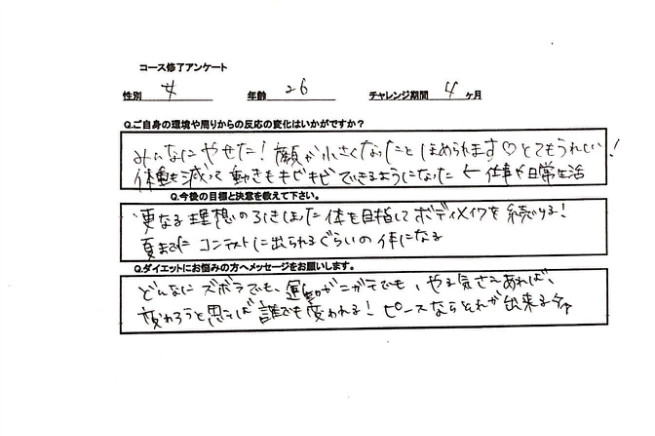 コース修了アンケート
性別 女 年齢 26 チャレンジ期間 4 ヶ月
Q.ご自身の環境や周りからの反応の変化はいかがですか？
みんなにやせた！顔が小さくなったとほめられます♡とてもうれしい！
体重も減って動きもキビキビできるようになった ← 仕事や日常生活
Q.今後の目標と決意を教えて下さい。
更なる理想のひきしまった体を目指してボディメイクを続ける！
夏までにコンテストに出られるぐらいの体になる
Q.ダイエットにお悩みの方へメッセージをお願いします。
どんなにズボラでも、運動がニガテでも、やる気さえあれば、
変わろうと思えば誰でも変われる！ピースならそれが出来る